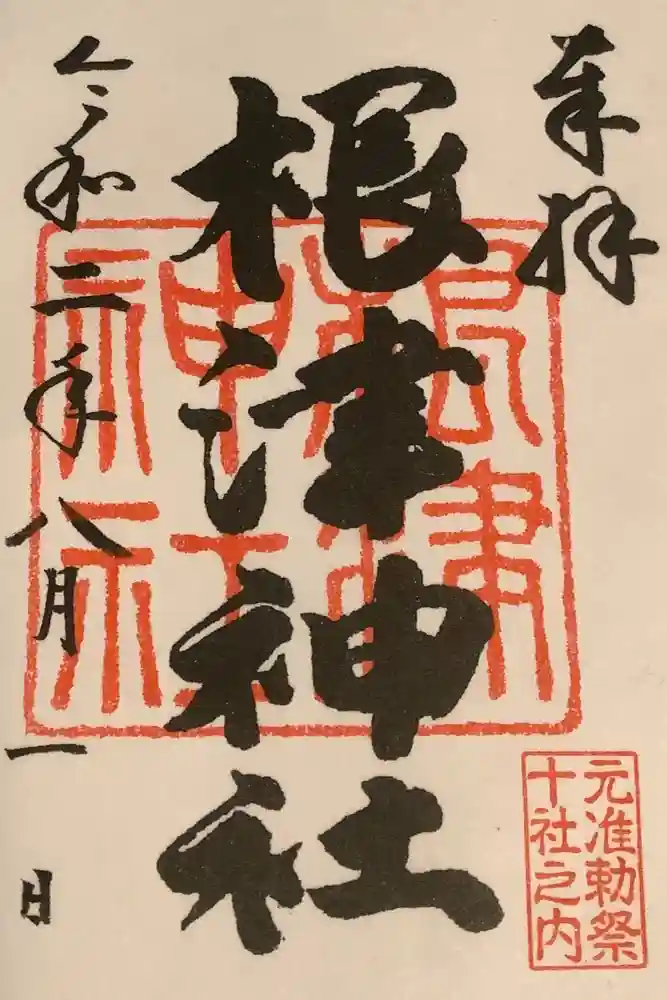 奉拝
根津神社
令和二年八月一日
根津
神社
元准勅祭
十社之内